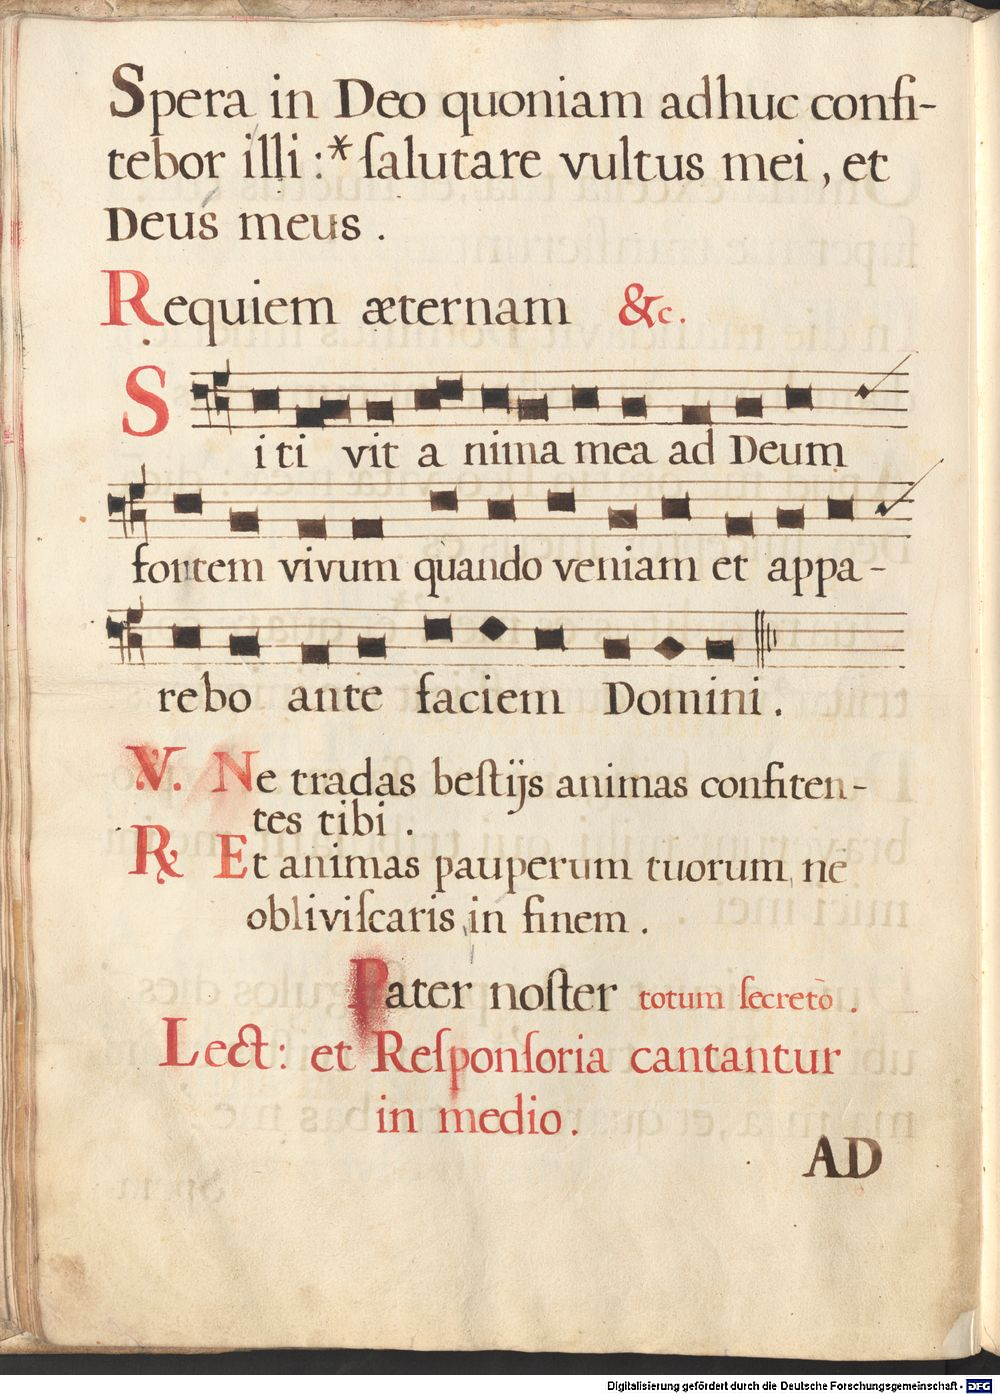 Spera in Deo quoniam adhuc confi-
tebor illi :* ſalutare vultus mei, et
Deus meus .
Requiem æternam &c.
S
iti vit a nima mea ad Deum
fontem vivum quando veniam et appa-
rebo ante faciem Domini .
V. Ne tradas beſtijs animas confiten-
tes tibi .
℞ Et animas pauperum tuorum ne
obliviſcaris in finem .
Pater noſter totum ſecretō .
Lect: et Reſponſoria cantantur
in medio .
AD
Digitalisierung gefördert durch die Deutsche Forschungsgemeinschaft - DFG